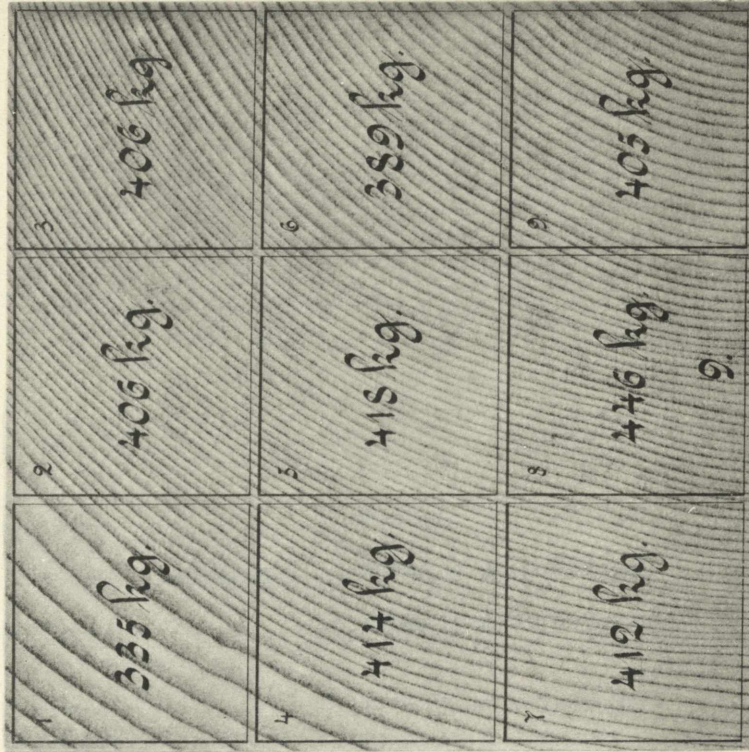 1
335 kg.
2
406 kg.
3
406 kg
4
414 kg.
5
418 kg.
6
389 kg.
7
412 kg.
8
446 kg
9.
9
405 kg.